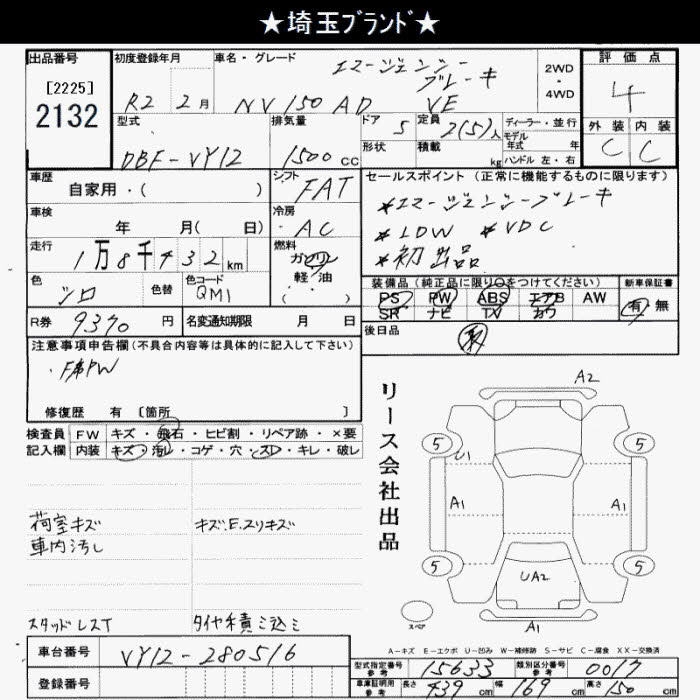 ★埼玉ﾌﾞﾗﾝﾄﾞ★
出品番号
[2225]
2132
初度登録年月
R2 2月
車名・グレード
エマージェンシー
ブレーキ
NV150 AD VE
2WD
・
4WD
評価点
4
外装 内装
C C
型式
DBF-VY12
排気量
1500cc
ドア 5
定員 2(5)人
形状
積載 kg
ディーラー・並行
モデル
年式 年
ハンドル 左・右
車歴
自家用・( )
シフト
FAT
車検
年 月( 日)
冷房
AC
走行
1万8千932km
燃料
ガソリン
軽・油
( )
色
シロ
色替
色コード
QM1
R券 9370円
名変通知期限 月 日
セールスポイント (正常に機能するものに限ります)
*エマージェンシーブレーキ
*LDW *VDC
*初出品
装備品 (純正品に限り○をつけてください)
新車保証書
PS PW ABS エアB AW
SR ナビ TV カワ
有 無
後日品
注意事項申告欄(不具合内容等は具体的に記入して下さい)
・F席PW
修復歴 有 [箇所 ]
検査員
記入欄
FW キズ・飛石・ヒビ割・リペア跡・×要
内装 キズ・汚レ・コゲ・穴・スレ・キレ・破レ
荷室キズ
車内汚し
キズ.E.スリキズ
スタッドレスT
タイヤ積ミ込ミ
リース会社出品
A2
5 5
U1
A1 A1
5 5
UA2
スペア
A1
A-キズ E-エクボ U-凹み W-補修跡 S-サビ C-腐食 XX-交換済
車台番号
VY12-280516
登録番号
型式指定番号
参考
15633
類別区分番号
参考
0017
車庫証明用
参考
長さ 439cm
幅 169cm
高さ 150cm